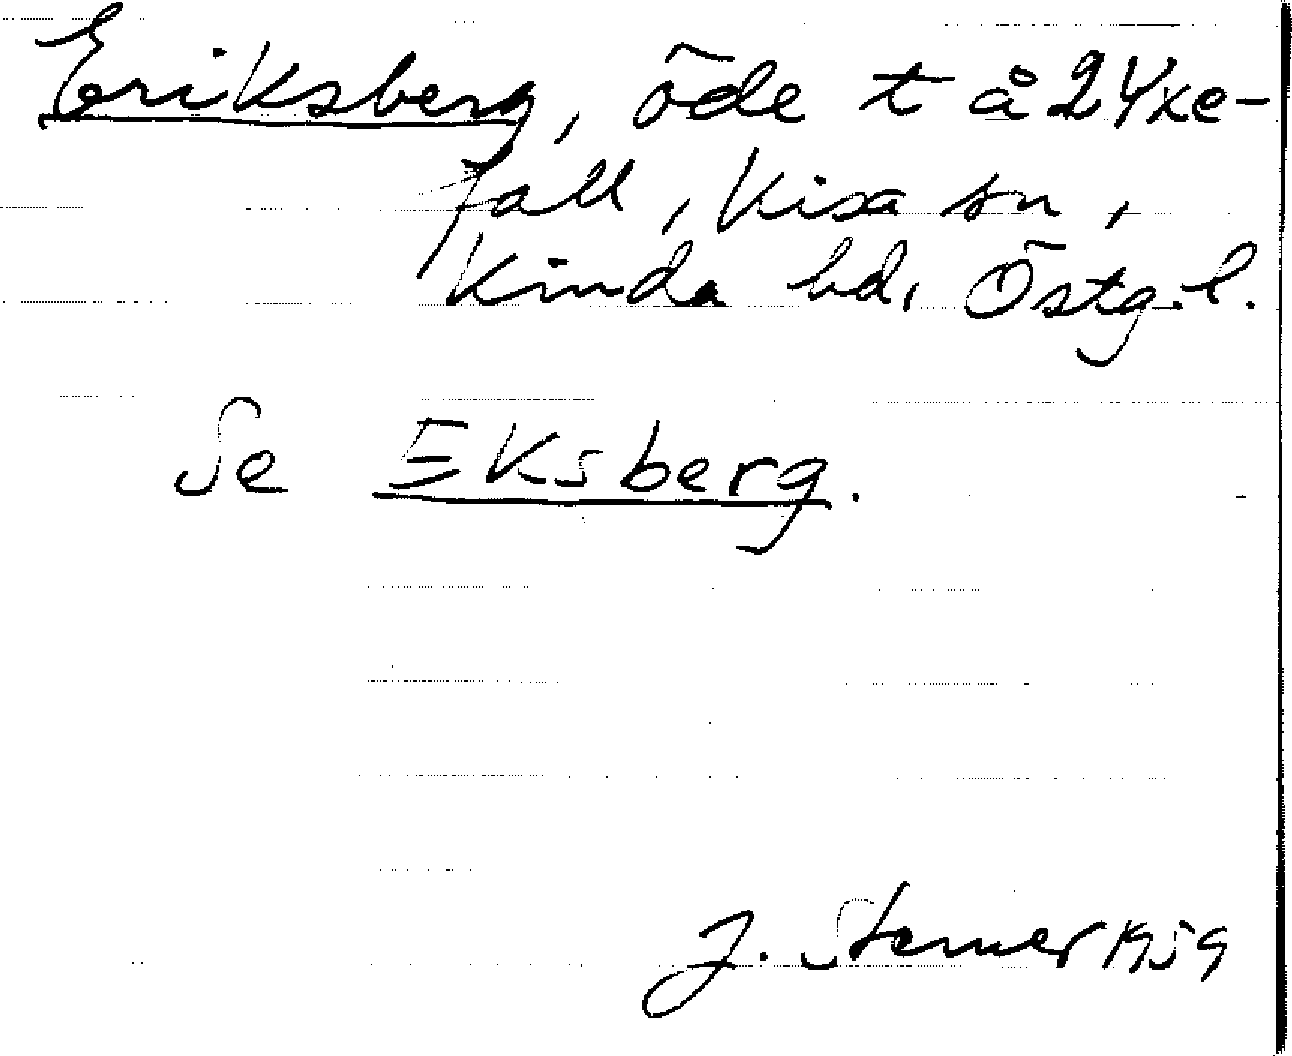 Eriksberg, öde t å 2 Yxe-
fall, Kisa sn,
Kinda hd, Östg. l.
Se Eksberg.
J. Sterner 1959